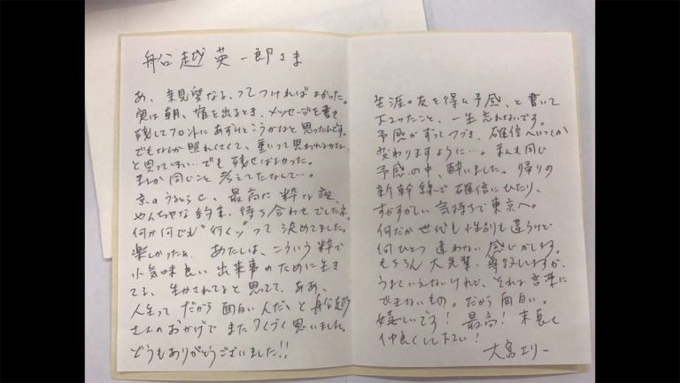 船越英一郎さま
あ、親愛なる、ってつければよかった。
実は朝、宿を出るとき、メッセージを書き
残してフロントにあずけとこうかなと思ったんです。
でもなんか照れくさくて、重いって思われるかな
と思ってしまい…でも残せばよかった。
まさか同じこと考えてたなんて…。
京のうるるC、最高に粋な設、
やんちゃな約束、待ち合わせでしたネ。
何が何でも“行くゾ”って決めてました。
楽しかったぁ。あたしは、こういう粋で
小気味良い出来事のために生き
てる、生かされてると思ってて、ああ、
人生ってだから面白いんだ、と船越
さんのおかげでまたつくづく思いました。
どうもありがとうございました!!
生涯の友を得る予感、と書いて
下さったこと、一生忘れないです。
予感がずっとつづき、確信へいつしか
変わりますように…。私も同じ
予感の中、酔いました。帰りの
新幹線で確信にひたり、
すがすがしい気持ちで東京へ。
何だか世代も性別も違うけど
何ひとつ違わない感じがします。
もちろん大先輩、尊敬しますが、
うまくいえないけれど、それは言葉に
できないもの。だから面白い。
嬉しいです！最高！末長く
仲良くして下さい！
大宮エリー